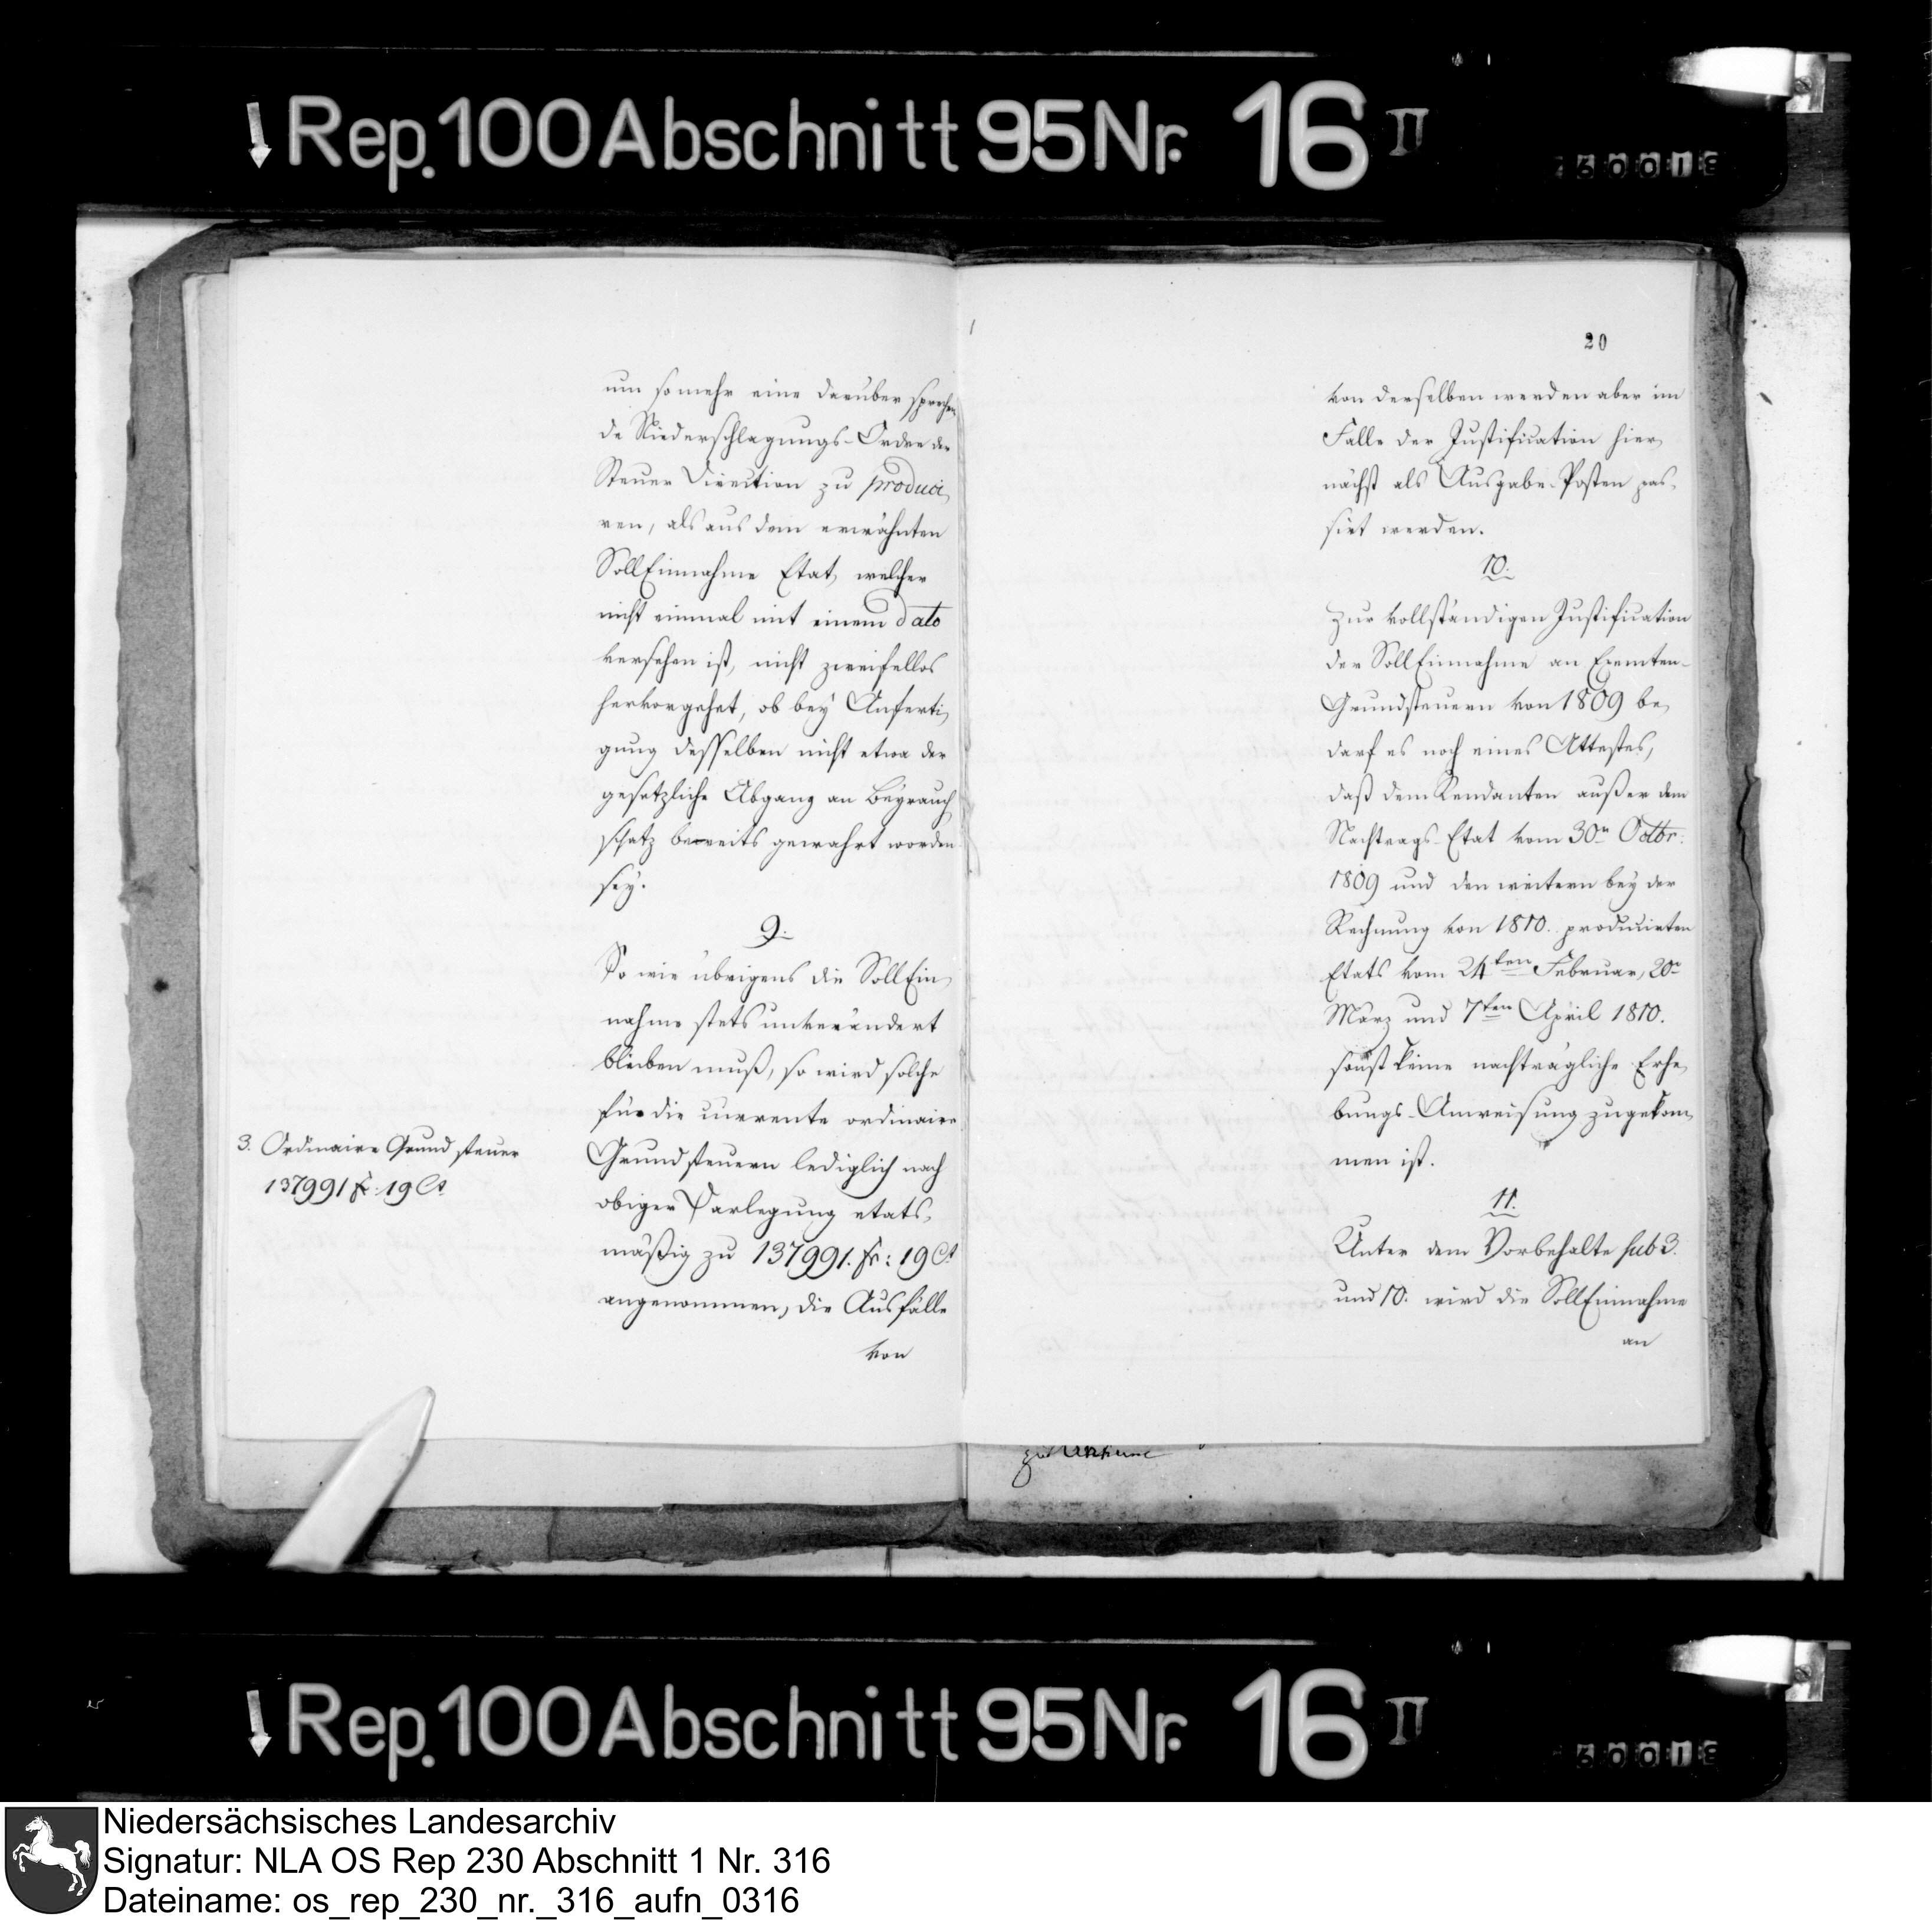 Rep. 100 Abschnitt 95 Nr. 16 II
20
um so mehr eine darüber sprechen
de Niederschlagungs-Ordre der
Steuer Direction zu produci
ren, als aus dem erwähnten
SollEinnahme Etat, welcher
nicht einmal mit einem dato
versehen ist, nicht zweifellos
hervorgehet, ob bey Anferti
gung desselben nicht etwa der
gesetzliche Abgang an
schatz bereits gewahrt worden
sey.
9.
So wie übrigens die SollEin
nahme stets unverändert
bleiben muß, so wird solche
für die currente ordinaire
3. Ordinaire Grundsteuer
137991 fr: 19 Ct
Grundsteuern lediglich nach
obiger Darlegung etats,
mäßig zu 137991. fr: 19 Ct
angenommen, die Ausfälle
von
von derselben werden aber im
Falle der Justification hier
nächst als Ausgabe-Posten pas
sirt werden.
10.
Zur vollständigen Justification
der SollEinnahme an Exemten-
Grundsteuern von 1809 be
darf es noch eines Attestes,
daß dem Rendanten außer dem
Nachtrags-Etat vom 30n Octbr:
1809 und den weitern bey der
Rechnung von 1810. producirten
Etats vom 24ten Februar, 20n
März und 7ten April 1810.
sonst keine nachträgliche Erhe
bungs-Anweisung zugekom
men ist.
11.
Unter dem Vorbehalte sub 3.
und 10. wird die SollEinnahme
an
Rep. 100 Abschnitt 95 Nr. 16 II
Niedersächsisches Landesarchiv
Signatur: NLA OS Rep 230 Abschnitt 1 Nr. 316
Dateiname: os_rep_230_nr._316_aufn_0316